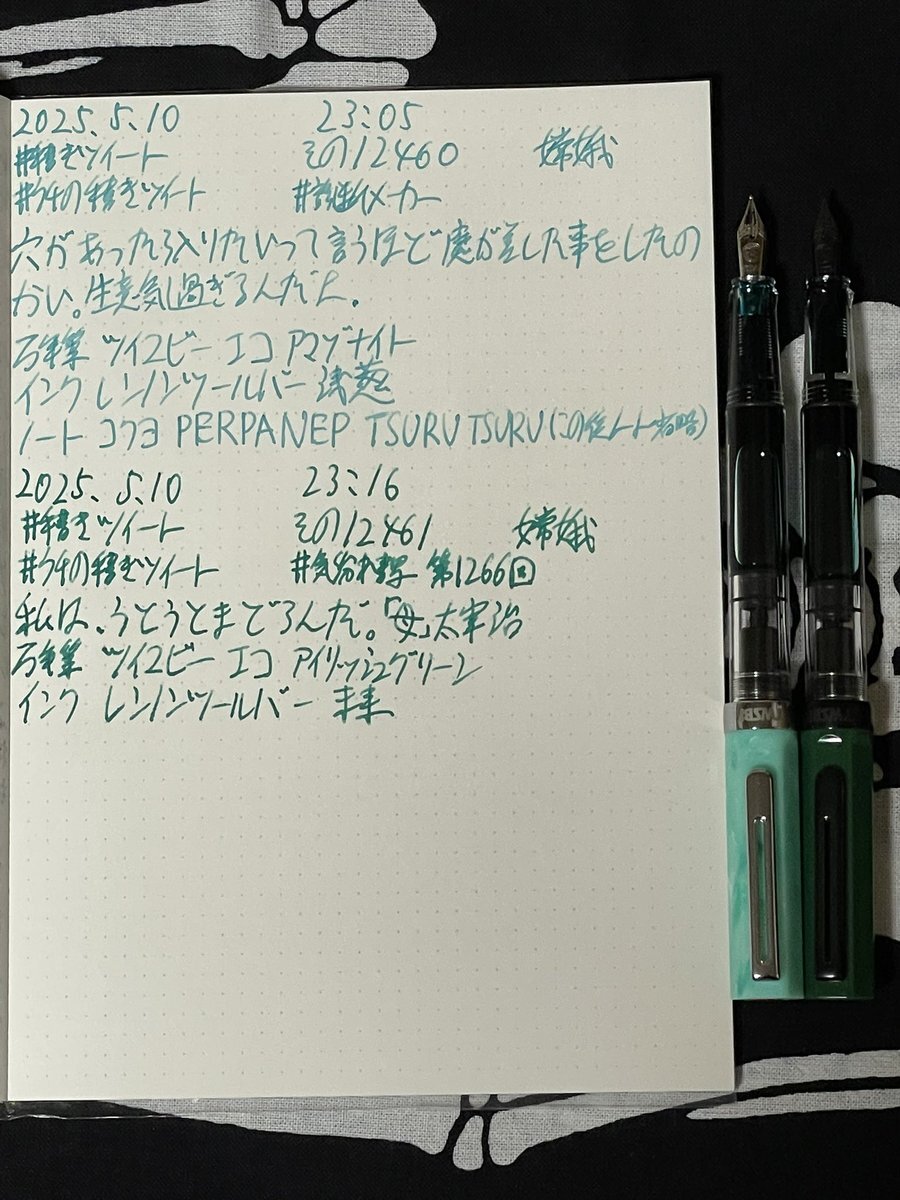 2025.5.10 23:05
#手書きツイート その12460 嫦娥
#ウチの手書きツイート #詭弁メーカー
穴があったら入りたいって言うほど魔が差した事をしたの
かい。生意気過ぎるんだよ。
万年筆 ツイスビー エコ アマゾナイト
インク レンノンツールバー 浅葱
ノート コクヨ PERPANEP TSURU TSURU(この後ノート省略)
2025.5.10 23:16
#手書きツイート その12461 嫦娥
#ウチの手書きツイート #気分で書写 第1266回
私は、うとうとまどろんだ。「母」太宰治
万年筆 ツイスビー エコ アイリッシュグリーン
インク レンノンツールバー
TWSBI